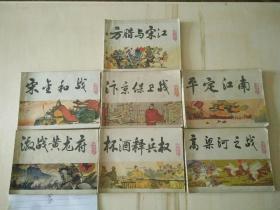 方腊与宋江
宋金和战
汴京保卫战
平定江南
激战黄龙府
杯酒释兵权
高梁河之战